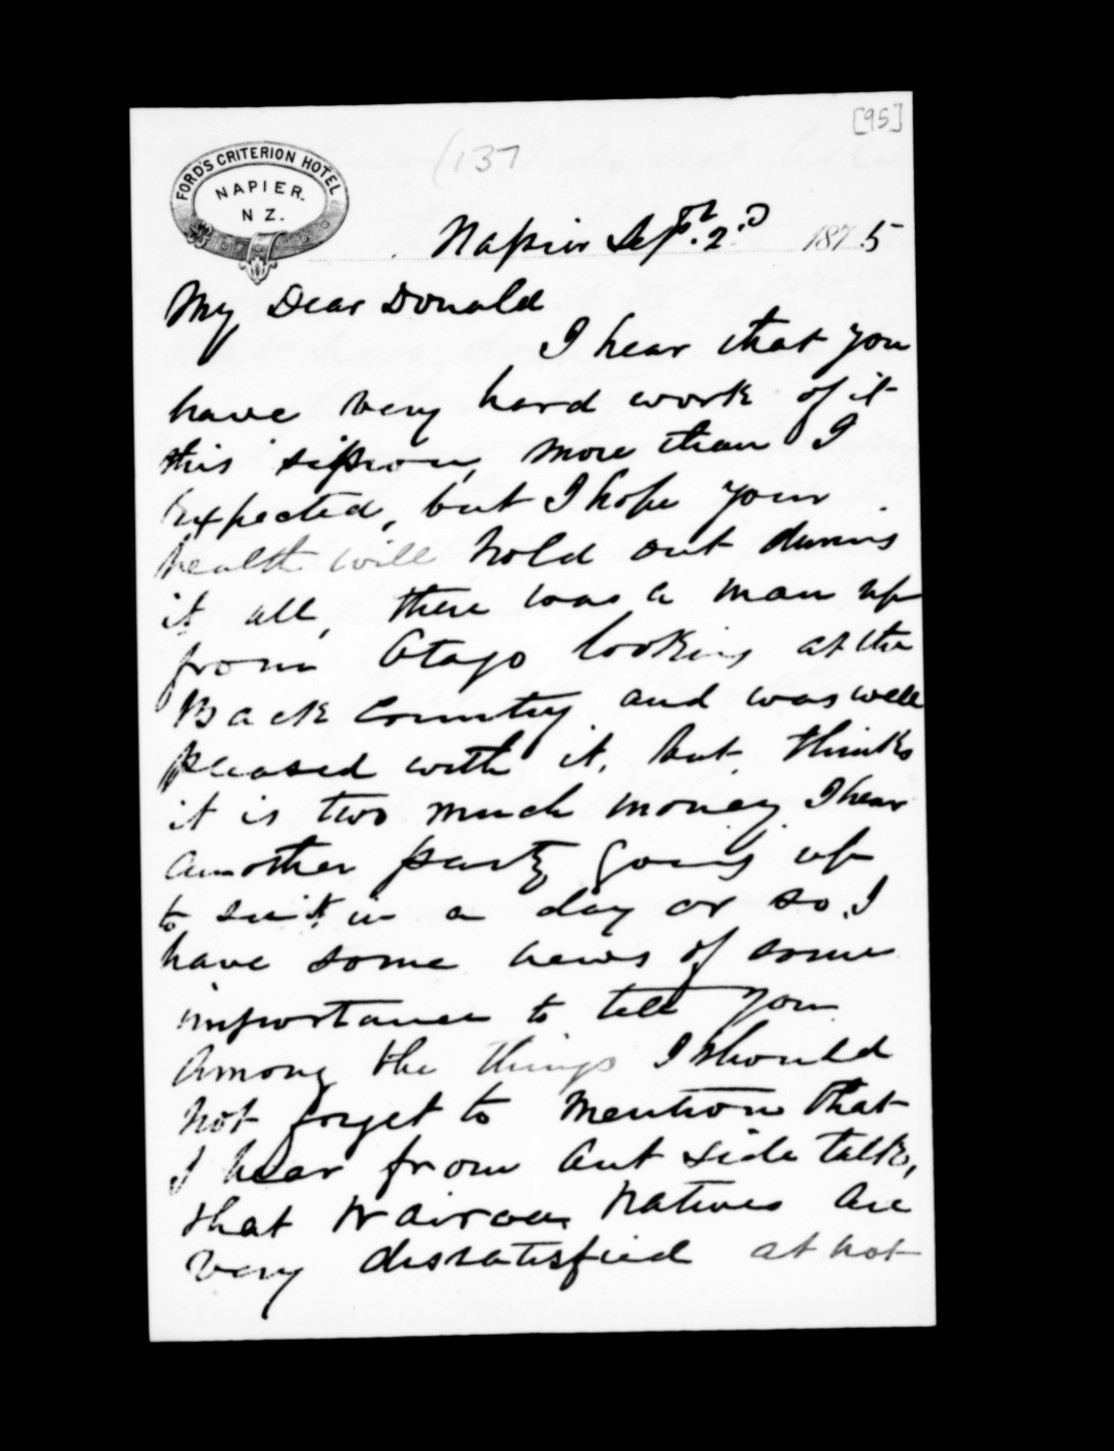 [95]
(137
FORD'S CRITERION HOTEL
NAPIER.
N Z.
Napier Sept. 2.d 1875
My Dear Donald
I hear that you
have very hard work of it
this session, more than I
expected, but I hope your
health will hold out during
it all, there was a man up
from Otago looking at the
Back Country and was well
pleased with it, but thinks
it is two much money I hear
another party going up
to see it in a day or so. I
have some news of some
importance to tell you
Among the things I should
not forget to mention that
I hear from out side talk,
that Wairoa Natives are
very dissatisfied at not